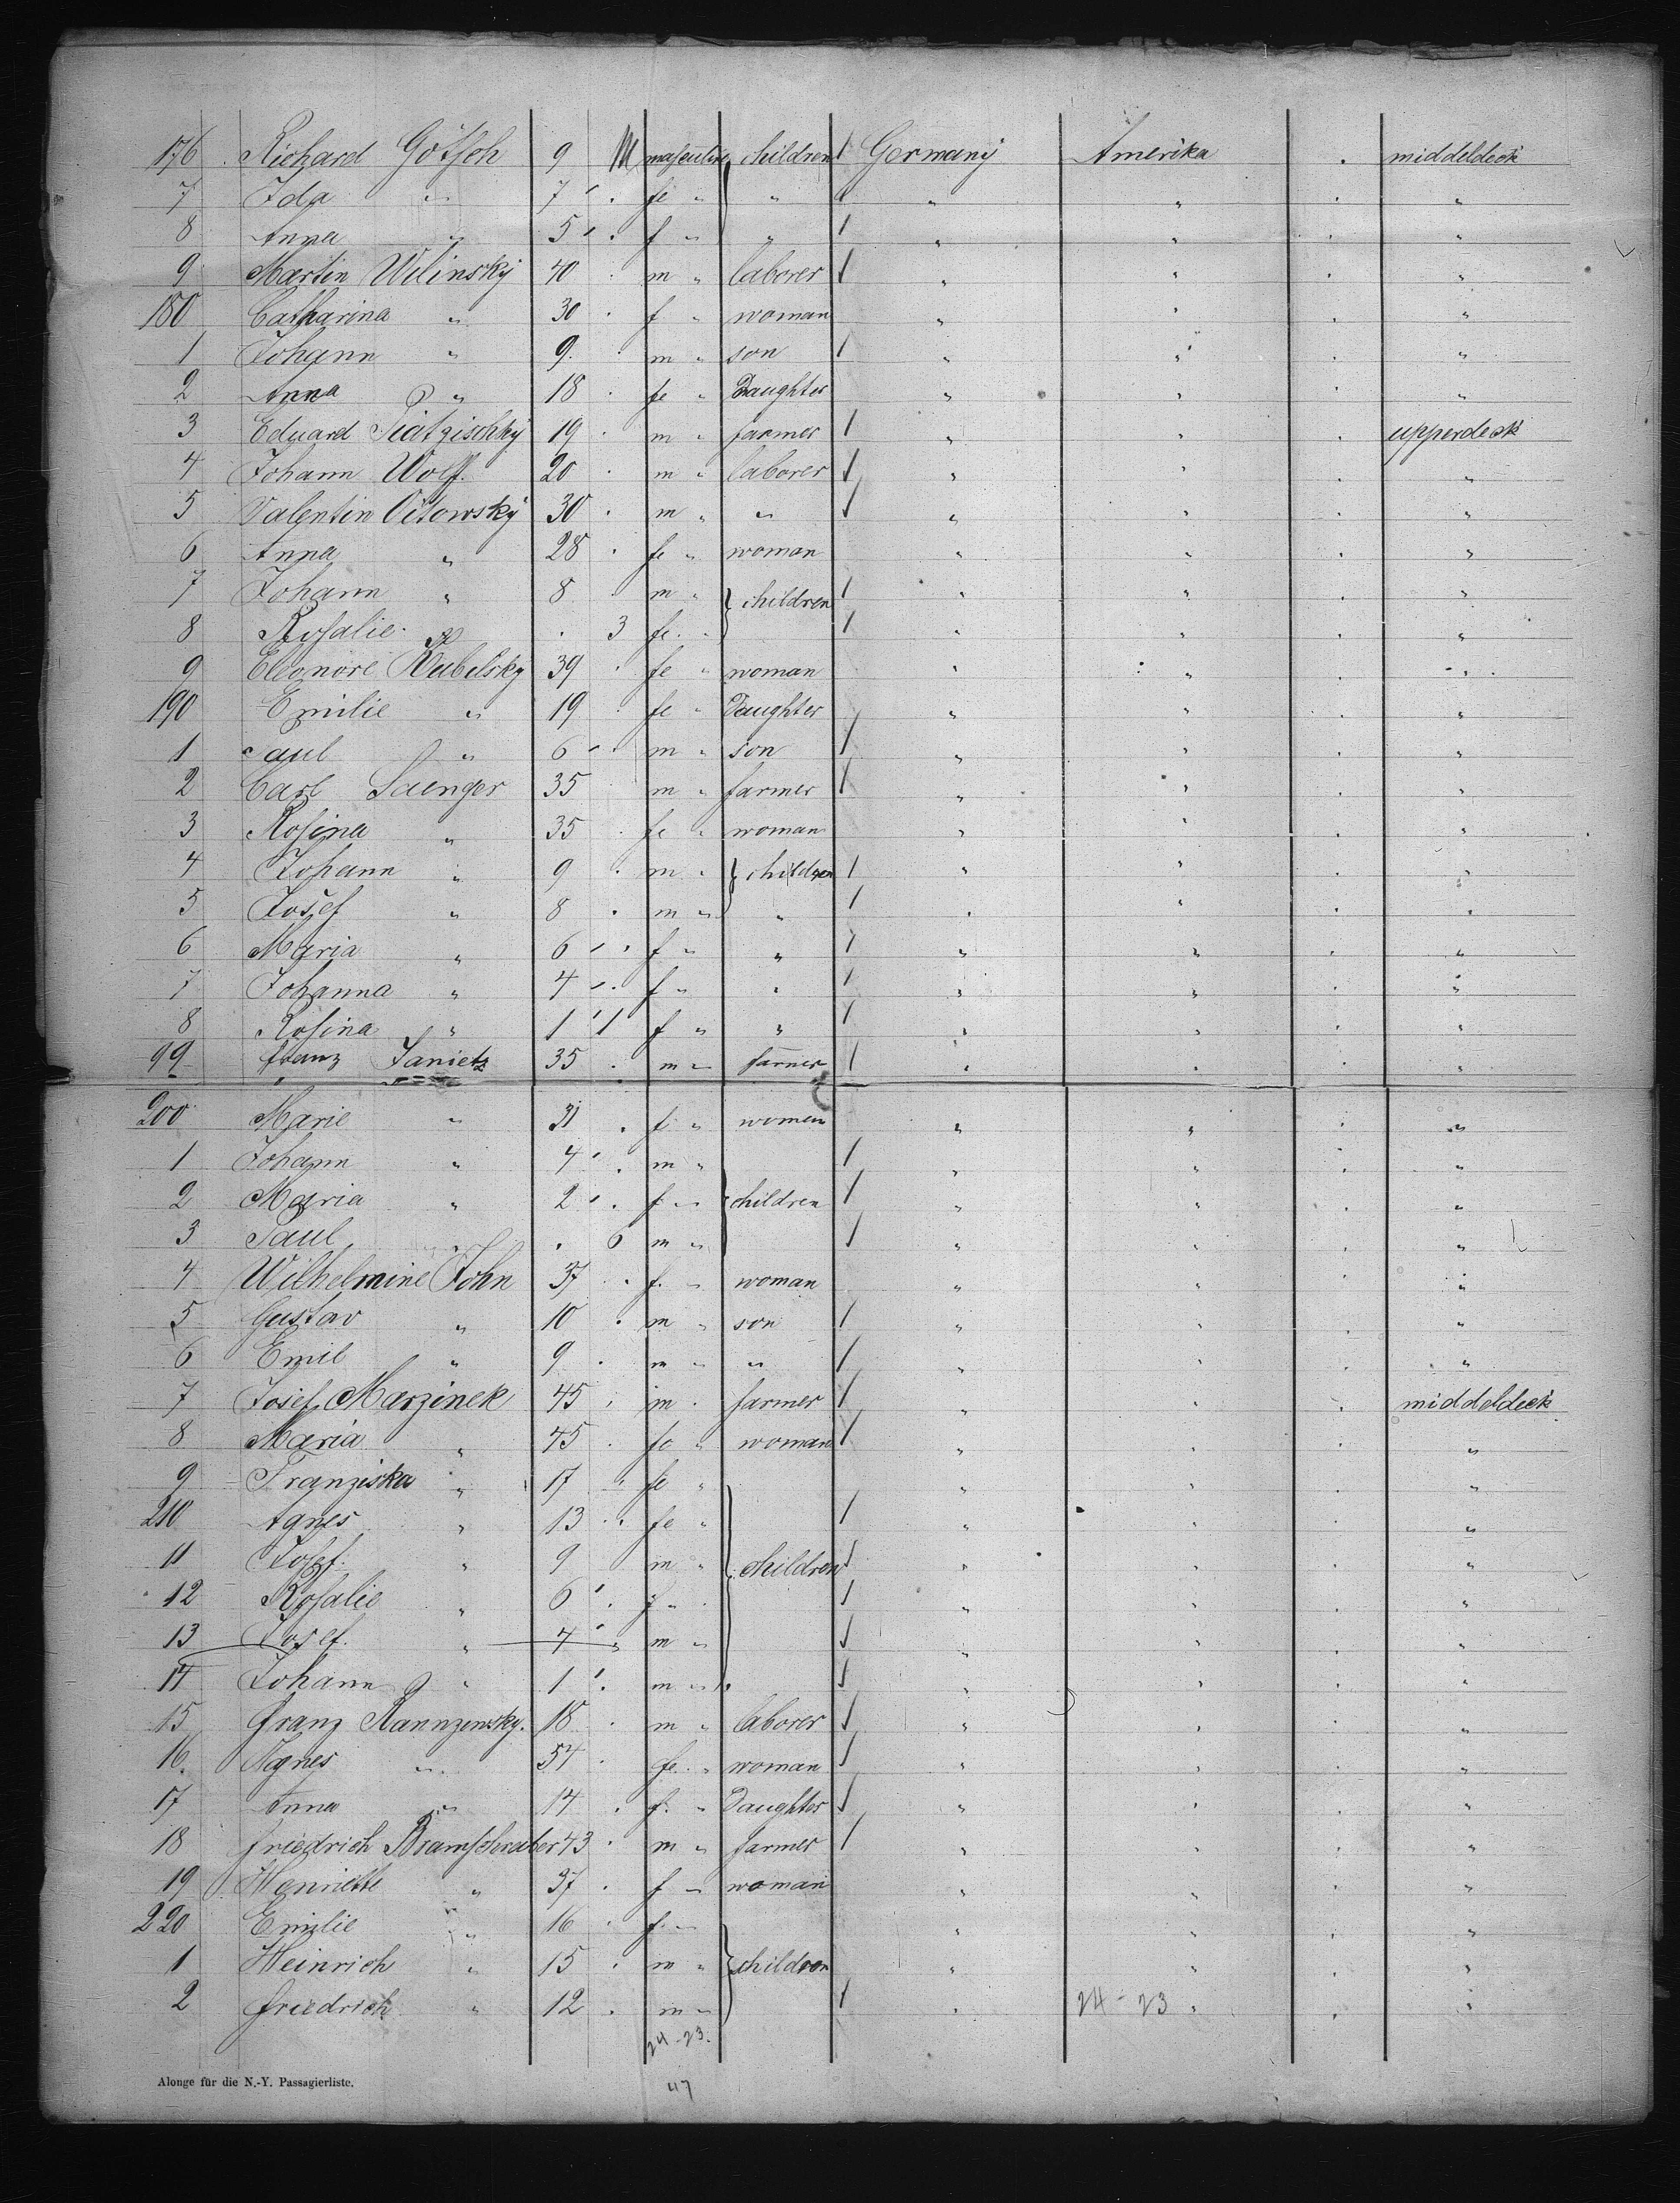 176 Richard Götsch 9 M masculine children / Germany Amerika . middeldeck
7 Ida " 7 ' . fe " " / " " "
8 Anna " 5 ' . f " " / " " . "
9 Martin Wilinsky 40 . m " laborer / " " . "
180 Catharina " 30 . f " woman " " . "
1 Johann " 9. . m " son / " " . "
2 Anna " 18 . fe " Daughter " " . "
3 Eduard 19 . m " farmer / " " . upperdeck
4 Johann Wolff. 20 . m " laborer / " " . "
5 Valentin Oitowsky 30 . m " " / " " . "
6 Anna " 28 . fe " woman " " . "
7 Johann " 8 m " } children / " " . "
8 Rosalie " . 3 fe. " / " " . "
9 Eleonore Kubelsky 39 . fe " woman " " . "
190 Emilie " 19 . fe " Daughter " " . "
1 Paul " 6 ' . m " son / " " . "
2 Carl Saenger 35 m " farmer / " " . "
3 Rosina " 35 . fe " woman " " . "
4 Johann " 9 . m " } children / " " . "
5 Josef " 8 . m " " / " " . "
6 Maria " 6 ' . f " " / " " . "
7 Johanna " 4 ' . f " " / " " . "
8 Rosina " 1 ' 1 f " " / " " . "
99 Franz Janietz 35 . m " farmer / " " . "
200 Marie " 31 . f " women " " . "
1 Johann " 4 ' . m " / " " . "
2 Maria " 2 ' . f " children / " " . "
3 Paul " . 6 m " / " " . "
4 Wilhelmine John 37 . f. " woman " " . "
5 Gustav " 10 . m " son / " " . "
6 Emil " 9 . m " " / " " . "
7 Josef Marzinek 45 . m " farmer / " " . middeldeck
8 Maria " 45 . fe " woman / " " . "
9 Franziska " 17 . fe " " " . "
210 Agnes " 13 . fe " / " " . "
11 Josef. " 9 m " } children / " " . "
12 Rosalie " 6 ' . f " / " " . "
13 Josef. " 4 ' . m " / " " . "
14 Johann " 1 ' . m " / " " . "
15 Franz Rannzensky. 18 . m " laborer / " " . "
16. Agnes " 54 . fe. " woman / " " . "
17 Anna " 14 . f. " Daughter / " " . "
18 Friedrich 43 . m " farmer / " " . "
19 Henriette " 37 . f " woman " " . "
220 Emilie " 16 . f " " " . "
1 Heinrich " 15 . m " } children " " . "
2 Friedrich " 12 . m " / " 24-23 " . "
24-23.
47
Alonge für die N.-Y. Passagierliste.